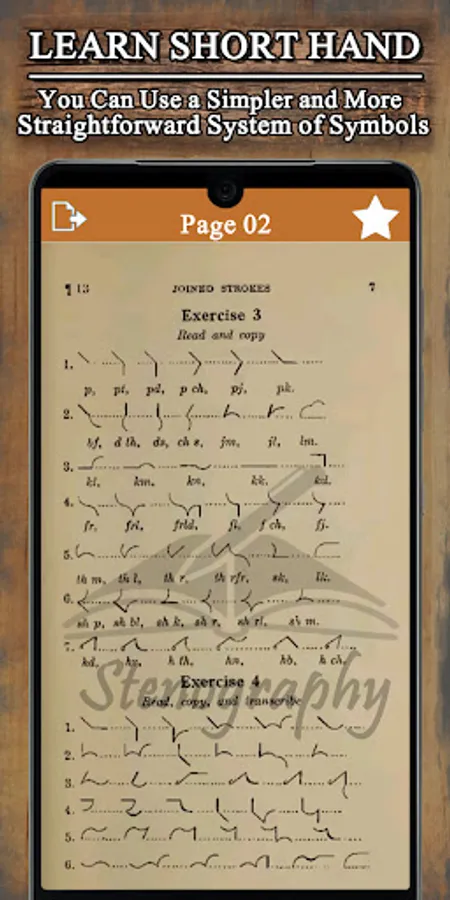 LEARN SHORT HAND
You Can Use a Simpler and More
Straightforward System of Symbols
Page 02
¶ 13 JOINED STROKES 7
Exercise 3
Read and copy
1.
p, pt, pd, p ch, pj, pk.
2.
bf, d th, ds, ch s, jm, jl, lm.
3.
kl, km, kn, kk, kd.
4.
fr, frl, frld, fl, f ch, fj.
5.
th m, th l, th r, th rfr, sk, lk.
6.
sh p, sh bl, sh k, sh r, sh rl, sh m.
7.
hd, h th, hn, hb, h ch.
Stenography
Exercise 4
Read, copy, and transcribe
1.
2.
3.
4.
5.
6.